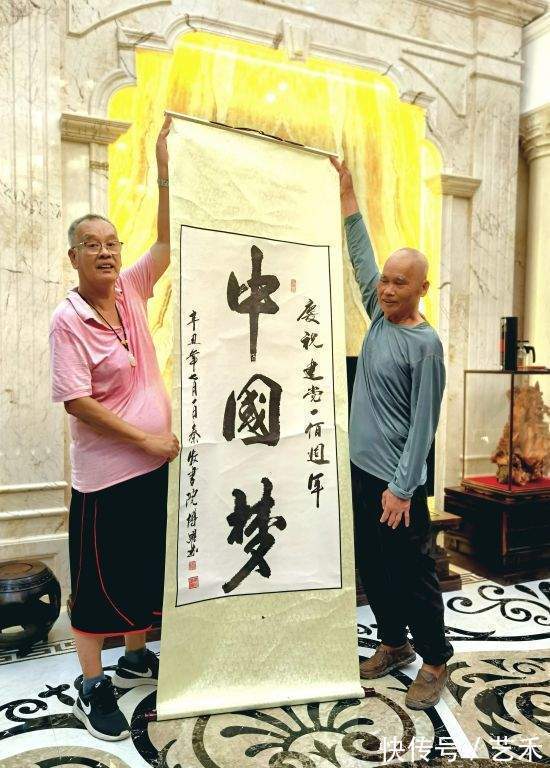 慶祝建党一佰週年
中國梦
辛丑年七月一日秦书院
快传号 / 艺禾